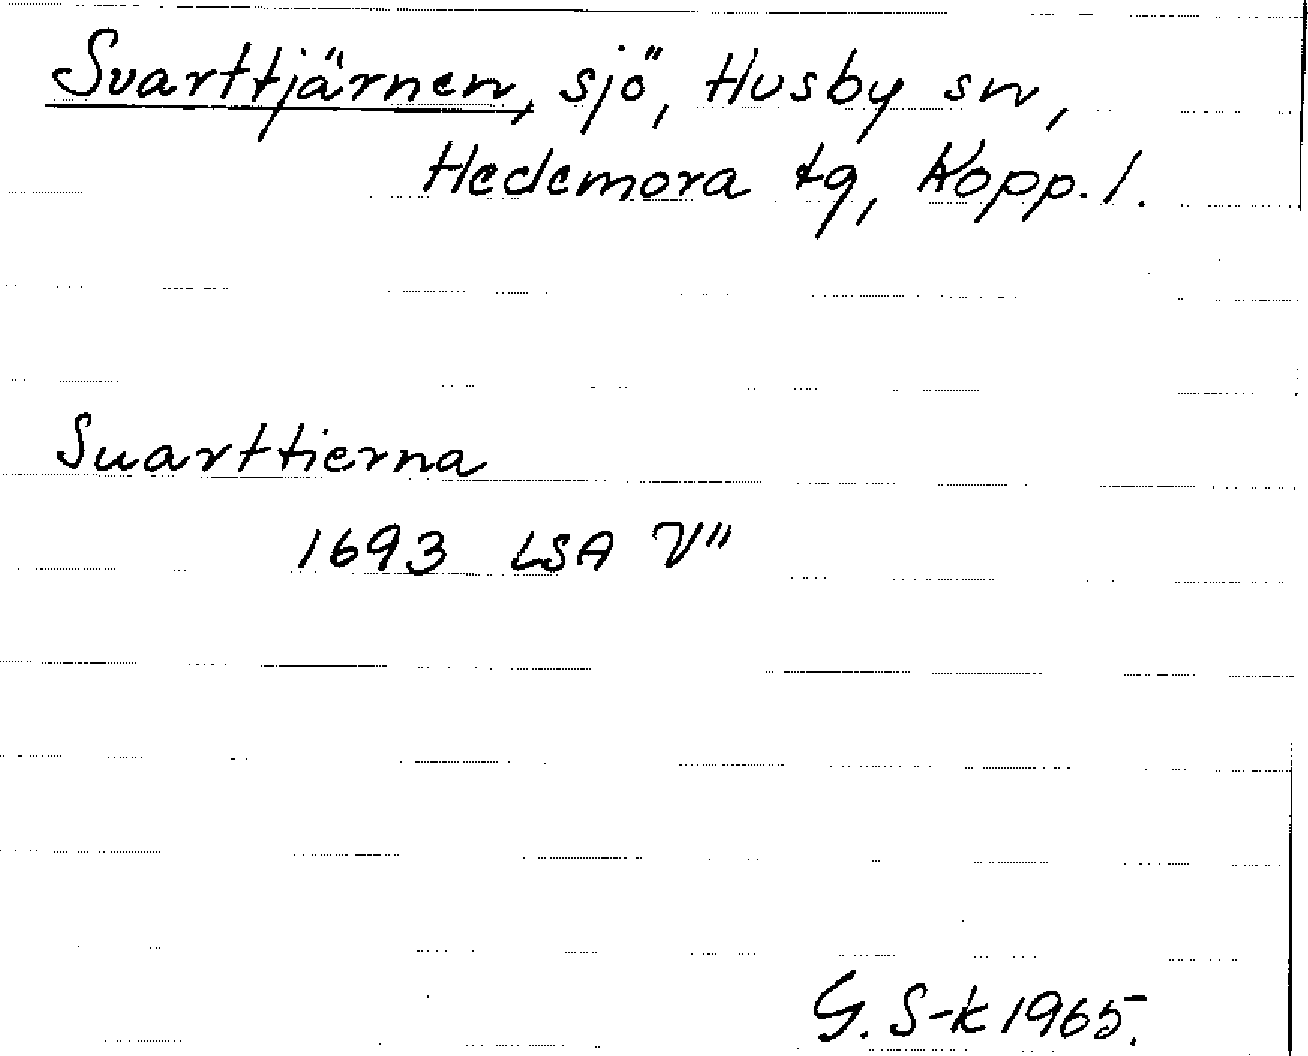 Svarttjärnen, sjö, Husby sn,
Hedemora tg, Kopp. l.
Suarttierna
1693 LSA V"
G. S-k 1965.